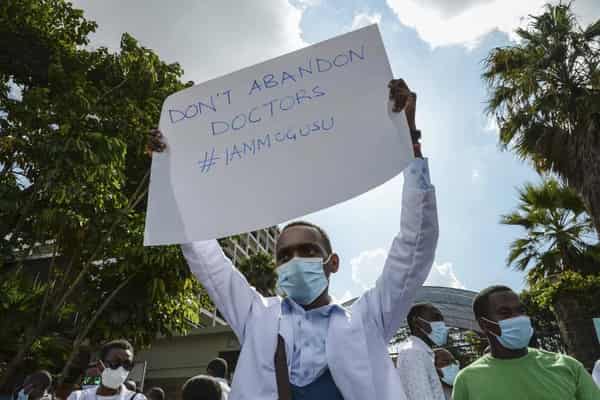 DON'T ABANDON
DOCTORS
#IAMMOGUSU